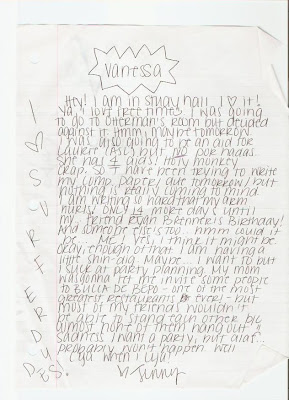 Vanessa
Hey! I am in study hall. I ♡ it!
Ya! I love free times. I was going
to go to Otterman's room but decided
against it. Hmm, maybe tomorrow.
I was also going to be an aid for
Laurie (ASC) but no por nadas.
She has 4 aids! Holy monkey
crap. So I have been trying to write
my comp. paper, due tomorrow, but
nothing is really coming to mind.
I am writing so hard that my arm
hurts. Only 14 more days until
my friend Ryan Brenner's Birthday!
And someone else is too... hmm could it
be... ME. Yes, I think it might be
okay, enough of that I am having a
little shin-dig. Maybe... I want to but
I suck at party planning. My mom
was gonna let me invite some people
to BUCCA DE BEPO - one of the most
greatest restaurants ever! - but
most of my friends wouldn't
be able to stand each other b/c
almost none of them hang out.
Sadness. I want a party, but alas...
probably won't happen. Well
Cya when I cya!
Jinny
I ♡ SURFER DUDES.